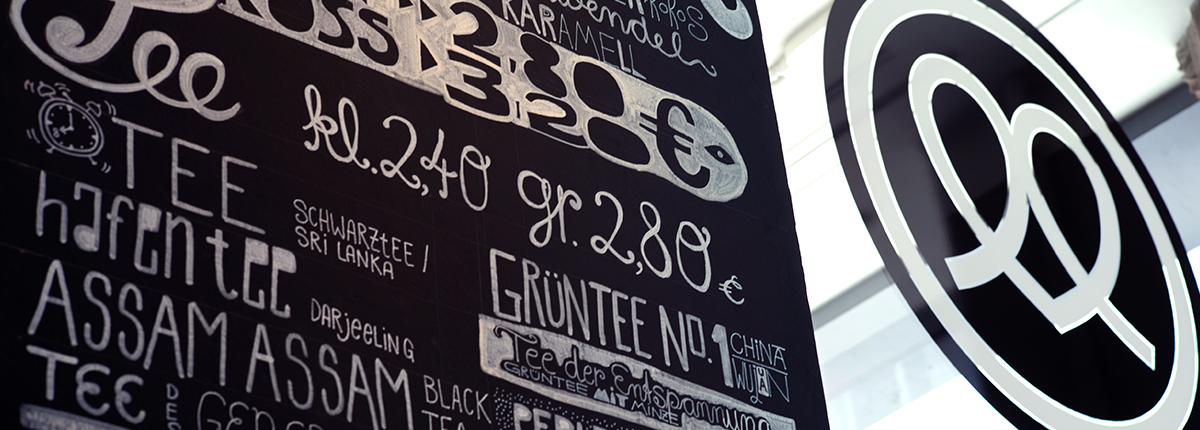 KARAMELL
GROSS 3,20 €
2,80
Tee
kl. 2,40 gr. 2,80 €
TEE
hafentee
SCHWARZTEE /
SRI LANKA
ASSAM ASSAM
DARJEELING
TEE
BLACK
GRÜNTEE NO. 1
CHINA
WUJÄN
Tee der Entspannung
GRÜNTEE MIT MINZE